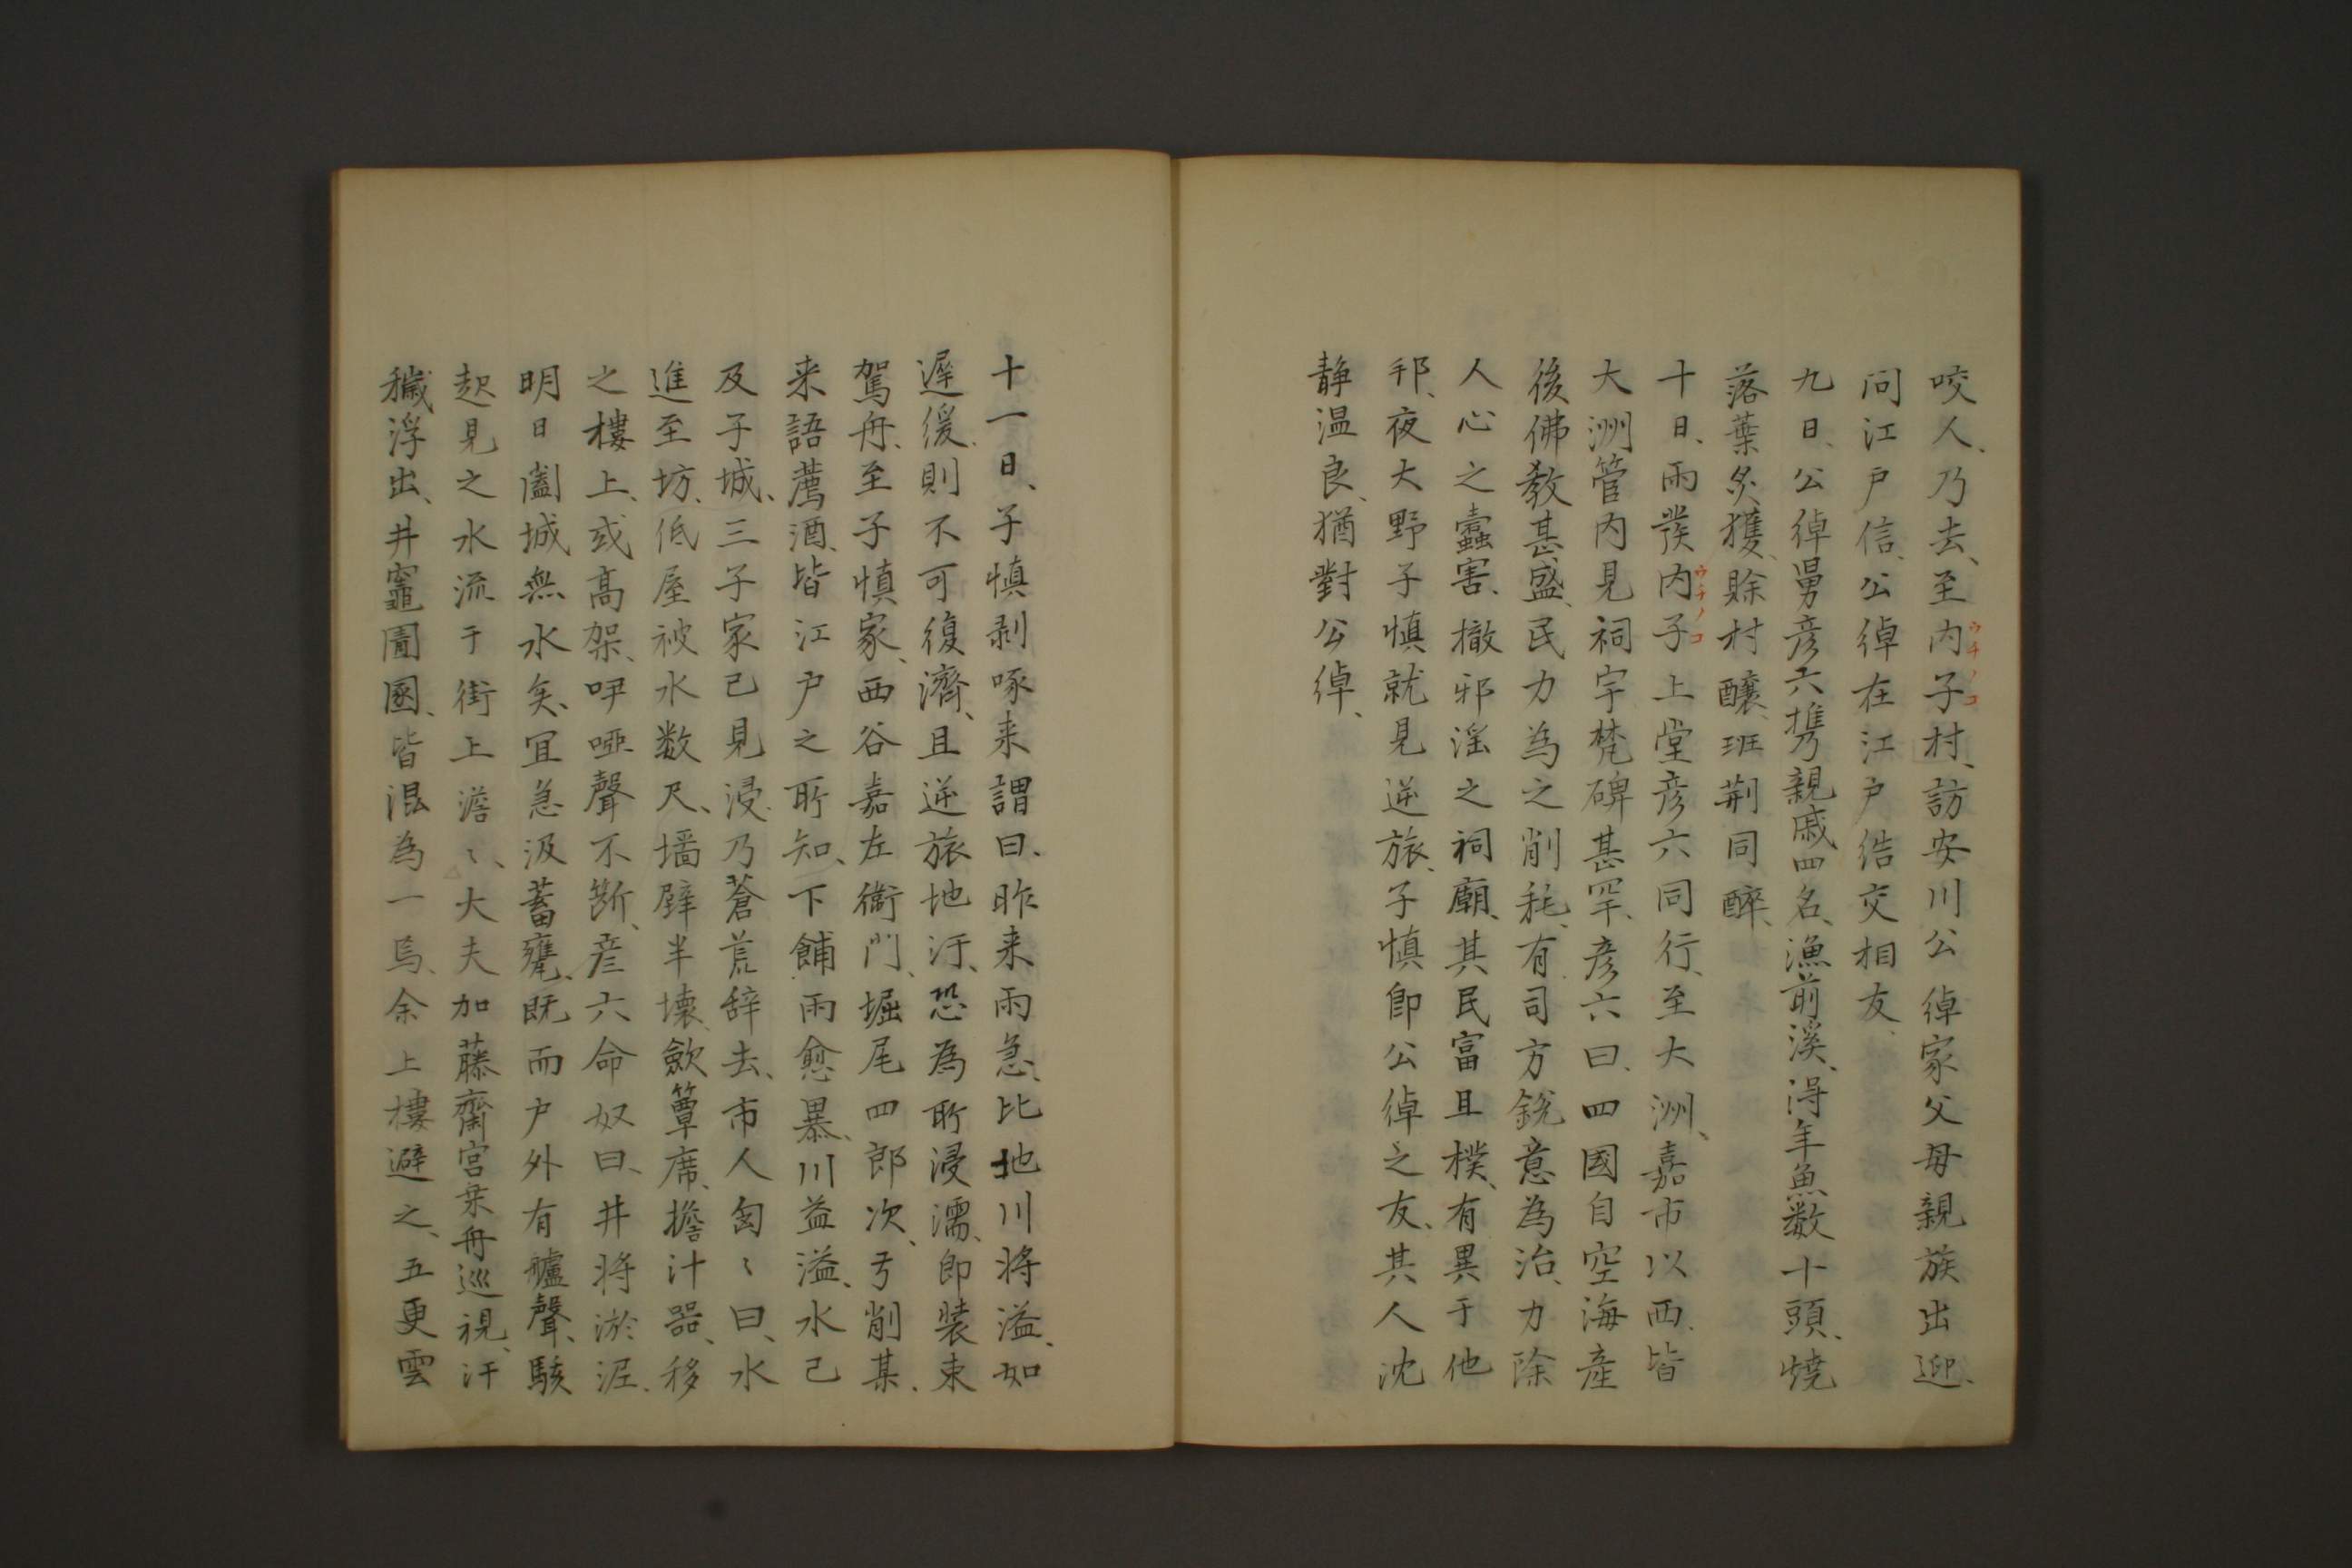 咬人、乃去、至内子村、訪安川公綽家父母親族出迎、
ウチノコ
问江户信、公綽在江户结交相友、
九日、公綽舅彦六携親戚四名、漁前溪、得年魚数十頭、焼
落葉炙獲、賒村釀、班荆同醉、
十日、雨發内子上堂彦六同行、至大洲、嘉市以西、皆
ウチノコ
大洲管内見祠宇梵碑甚罕、彦六曰、四國自空海産
後佛教甚盛、民力為之削耗、有司方鋭意為治、力除
人心之蠹害、撤邪淫之祠廟、其民富且樸、有異于他
邦、夜大野子慎就見逆旅、子慎即公綽之友、其人沈
静温良、猶對公綽、
十一日、子慎剥啄来謂曰、昨来雨急、比地川将溢、如
遲緩、則不可復濟、且逆旅地汙、恐為所浸濡、即装束
駕舟、至子慎家、西谷嘉左衛門、堀尾四郎次、弓削某、
来語薦酒、皆江户之所知、下餔雨愈暴、川益溢、水已
及子城、三子家已見浸、乃蒼荒辞去、市人匈〻曰、水
進至坊、低屋被水数尺、墻壁半壊、歛簟席、擔汁器、移
之樓上、或高架、咿啞聲不斷、彦六命奴曰、井将淤泥、
明日闔城無水矣、宜急汲蓄甕、既而户外有艫聲、駭
起見之水流于街上澹〻、大夫加藤齋宮乗舟巡視、汗
穢浮出、井竈圊圂、皆混為一烏、余上樓避之、五更雲